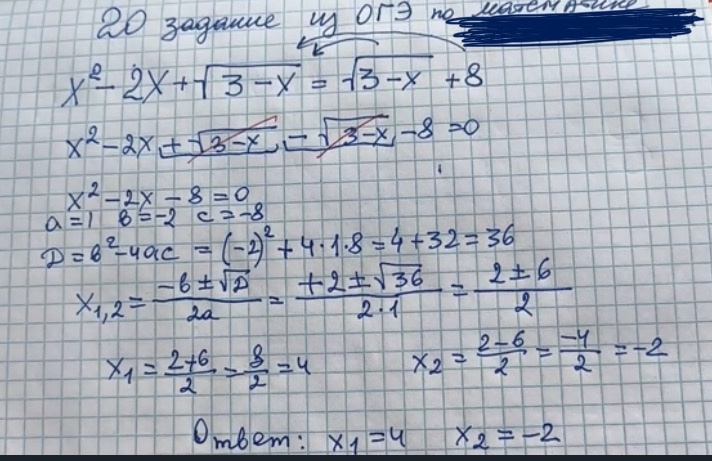 20 задание из ОГЭ по математике
x² - 2x + √3-x = √3-x + 8
x² - 2x + √3-x - √3-x - 8 = 0
x² - 2x - 8 = 0
a = 1 в = -2 c = -8
D = в² - 4ac = (-2)² + 4·1·8 = 4 + 32 = 36
x1,2 = -в ± √D / 2a = +2 ± √36 / 2·1 = 2 ± 6 / 2
x1 = 2+6 / 2 = 8 / 2 = 4 x2 = 2-6 / 2 = -4 / 2 = -2
Ответ: x1 = 4 x2 = -2